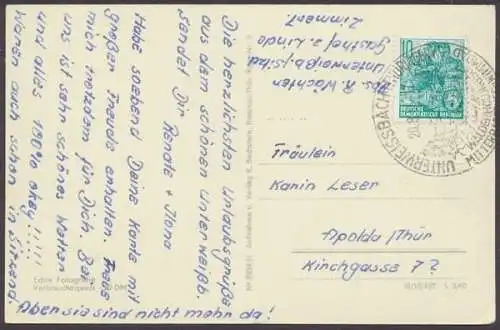 Die herzlichsten Urlaubsgrüße
aus dem schönen Unterweißb.
sendet Dir
Renate + Ilona
Habe soebend Deine Karte mit
großer Freude enhalten. Freue
mich trotzdem für Dich. Bei
uns ist sehr schönes Wetter
und alles 100% okey!!!!!
Waren auch schon in Sitzend.
Aber sie sind nicht mehr da!
Echte Fotografie
Abs. R. Wächter
Unterweißb./Sitzd
Gasthof z. Linde
Zimmer 1
10
DEUTSCHE
DEMOKRATISCHE REPUBLIK
UNTERWEISSBACH
Fräulein
Karin Leser
Apolda/Thür
Kirchgasse 7?